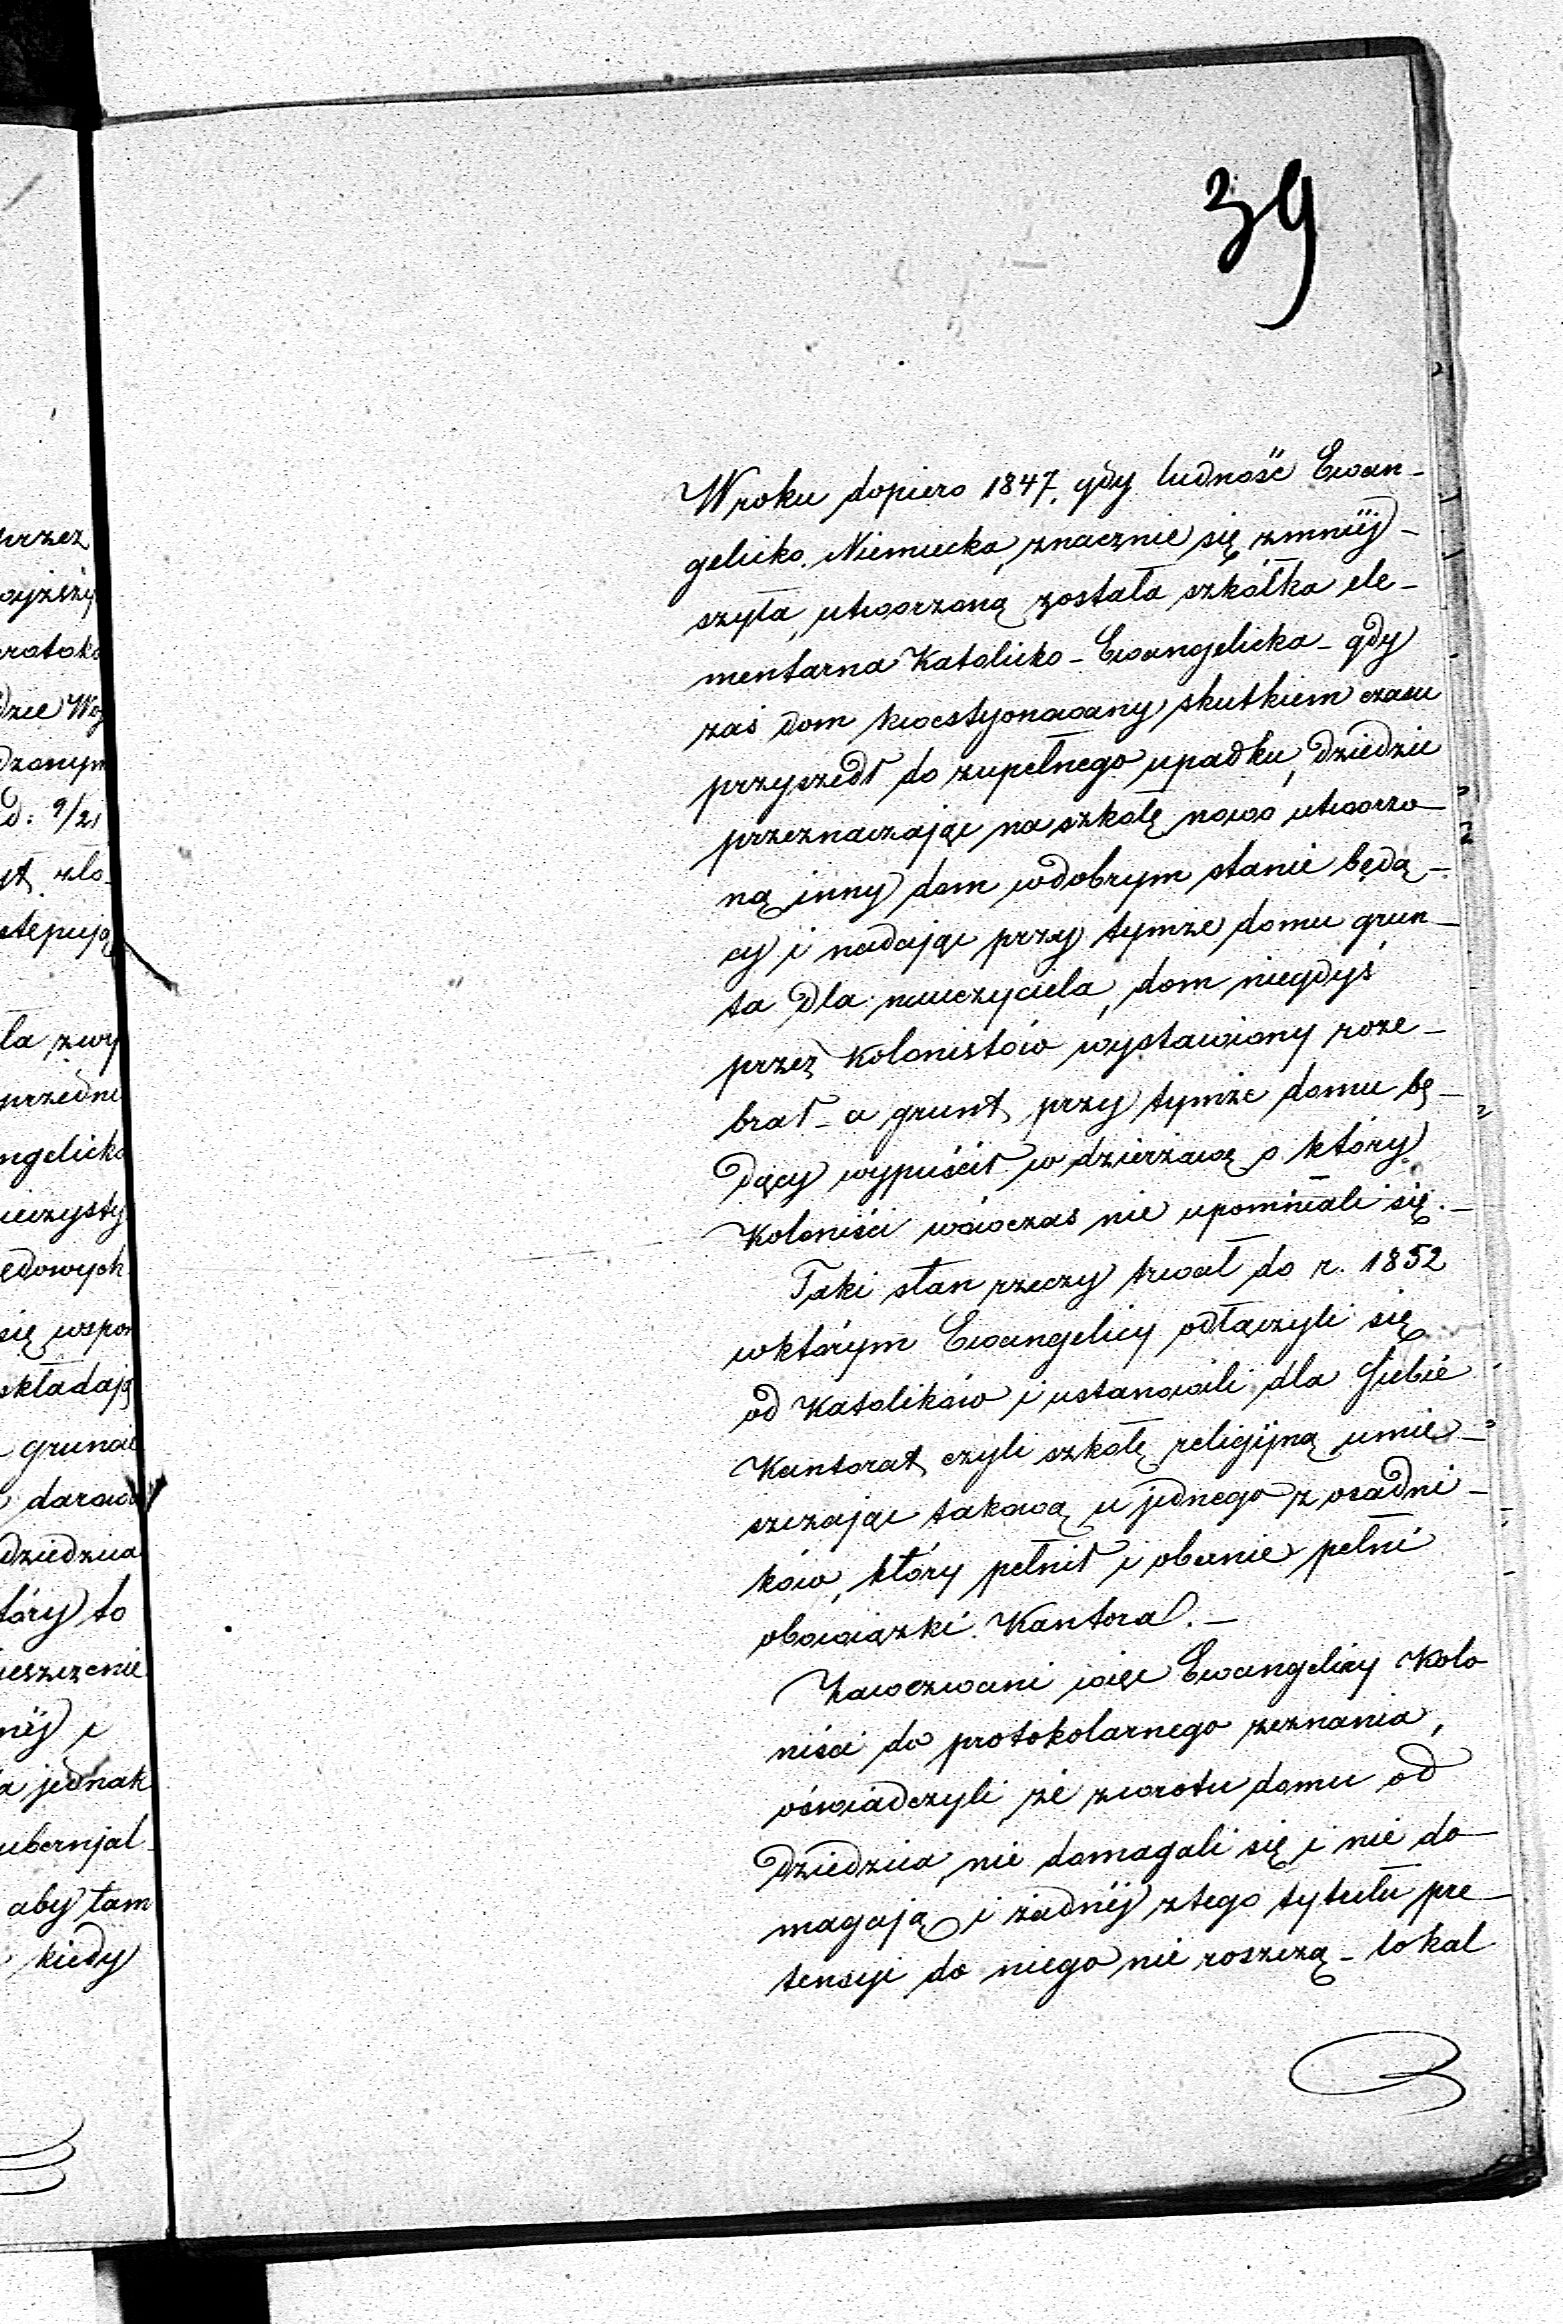 39
W roku dopiero 1847. gdy ludność Ewan-
gelicko. Niemiecka, znacznie się zmniéj-
szyła, utworzoną została szkółka ele-
mentarna Katolicko-Ewangelicka - gdy
zaś dom kwestyonowany skutkiem czasu
przyszedł do zupełnego upadku, dziedzic
przeznaczając na szkolę nowo utworzo-
ną inny dom w dobrym stanie będą-
cy i nadając przy tymże domu grun-
ta dla nauczyciela, dom niegdyś
przez Kolonistów wystawiony roze-
brał - a grunt przy tymże domu bę-
dący wypuścił w dzierżawę o który
Koloniści wówczas nie upominali się. -
Taki stan rzeczy trwał do r. 1852
w którym Ewangelicy odłączyli się
od Katolików i ustanowili dla siebie
Kantorat czyli szkołę religijną umie-
szczając takową u jednego z osadni-
ków, który pełnił i obecnie pełni
obowiązki Kantora. -
Zawezwani więc Ewangelicy Kolo
niści do protokolarnego zeznania,
oświadczyli że zwrotu domu od
dziedzica nie domagali się i nie do-
magają i żadnéj z tego tytułu pre-
tensyi do niego nie roszczą - lokal
przez
dzie
9/21
stępują
la
skladają
dziedzica
tóry to
a jednak
aby tam
kiedy